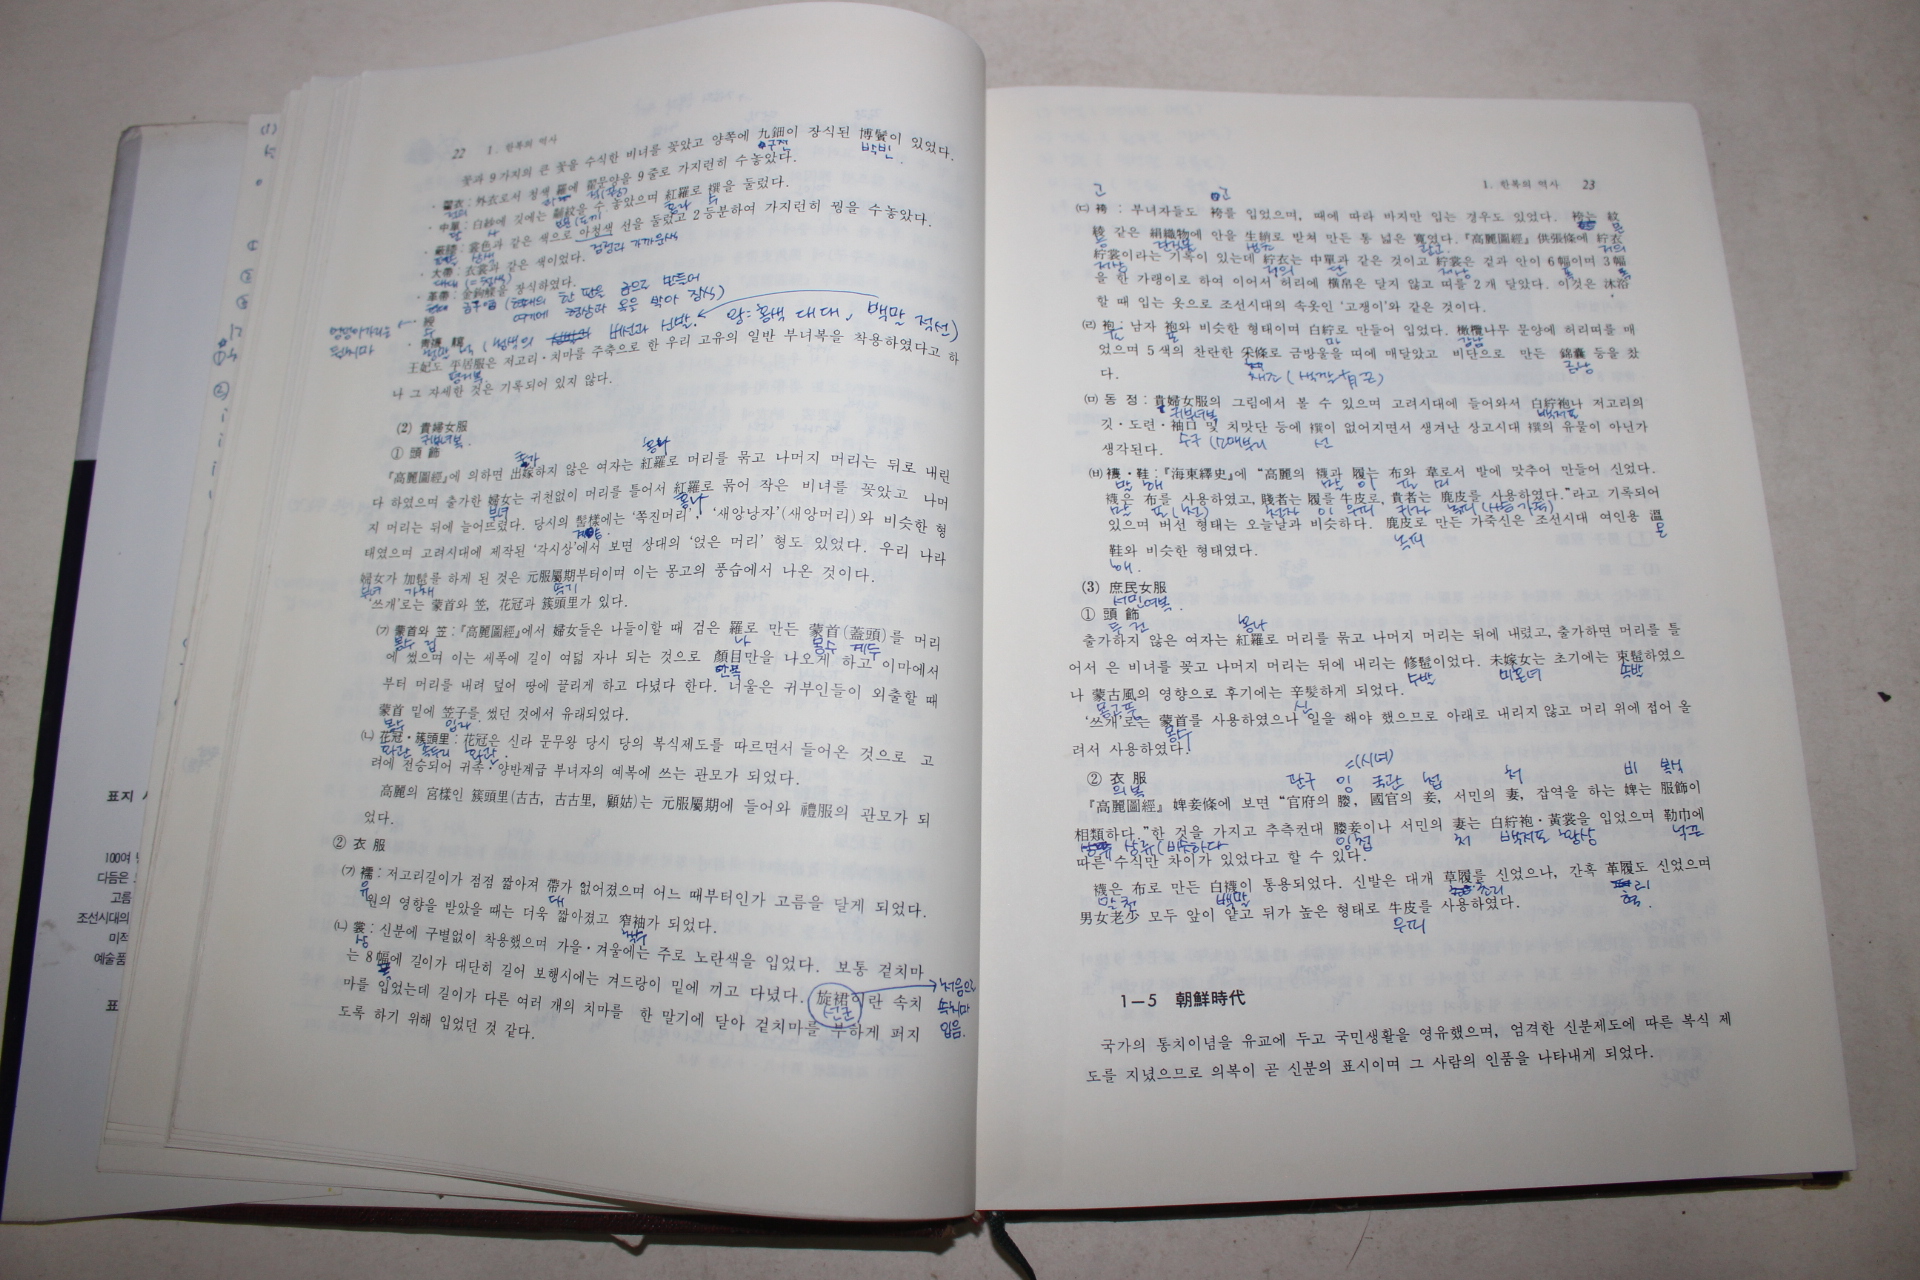 22 1. 한복의 역사
꽃과 9가지의 큰 꽃을 수식한 비녀를 꽂았고 양쪽에 九鈿이 장식된 博鬢이 있었다.
구전 박빈
· 翟衣: 外衣로서 청색 羅에 翟문양을 9줄로 가지런히 수놓았다.
· 中單: 白紗에 깃에는 黻紋을 수 놓았으며 紅羅로 襈을 둘렀다.
· 蔽膝: 裳色과 같은 색으로 아청색 선을 둘렀고 2등분하여 가지런히 꿩을 수놓았다.
검정과 가까운색
· 大帶: 衣裳과 같은 색이었다.
· 革帶: 金鉤䚢을 장식하였다.
· 綬
왕=홍색 대대, 백말 적선)
· 靑襪 舃
버선과 신발.
王妃도 平居服은 저고리·치마를 주축으로 한 우리 고유의 일반 부녀복을 착용하였다고 하
나 그 자세한 것은 기록되어 있지 않다.
(2) 貴婦女服
귀부녀복.
① 頭飾
출가 홍라
『高麗圖經』에 의하면 出嫁하지 않은 여자는 紅羅로 머리를 묶고 나머지 머리는 뒤로 내린
다 하였으며 출가한 婦女는 귀천없이 머리를 틀어서 紅羅로 묶어 작은 비녀를 꽂았고 나머
부녀 홍나
지 머리는 뒤에 늘어뜨렸다. 당시의 髻樣에는 '쪽진머리', '새앙낭자'(새앙머리)와 비슷한 형
태였으며 고려시대에 제작된 '각시상'에서 보면 상대의 '얹은 머리' 형도 있었다. 우리 나라
婦女가 加髢를 하게 된 것은 元服屬期부터이며 이는 몽고의 풍습에서 나온 것이다.
부녀 가체
'쓰개'로는 蒙首와 笠, 花冠과 簇頭里가 있다.
㈀ 蒙首와 笠:『高麗圖經』에서 婦女들은 나들이할 때 검은 羅로 만든 蒙首(蓋頭)를 머리
몽수 립 나 몽수 계두
에 썼으며 이는 세폭에 길이 여덟 자나 되는 것으로 顔目만을 나오게 하고 이마에서
안목
부터 머리를 내려 덮어 땅에 끌리게 하고 다녔다 한다. 너울은 귀부인들이 외출할 때
蒙首 밑에 笠子를 썼던 것에서 유래되었다.
몽수 입자
㈁ 花冠·簇頭里: 花冠은 신라 문무왕 당시 당의 복식제도를 따르면서 들어온 것으로 고
화관 족두리 화관
려에 전승되어 귀족·양반계급 부녀자의 예복에 쓰는 관모가 되었다.
高麗의 宮樣인 簇頭里(古古, 古古里, 顧姑)는 元服屬期에 들어와 禮服의 관모가 되
었다.
② 衣服
㈀ 襦: 저고리길이가 점점 짧아져 帶가 없어졌으며 어느 때부터인가 고름을 달게 되었다.
유 대
원의 영향을 받았을 때는 더욱 짧아졌고 窄袖가 되었다.
착수
㈁ 裳: 신분에 구별없이 착용했으며 가을·겨울에는 주로 노란색을 입었다. 보통 겉치마
상
는 8幅에 길이가 대단히 길어 보행시에는 겨드랑이 밑에 끼고 다녔다. 旋裙이란 속치
폭 선군
마를 입었는데 길이가 다른 여러 개의 치마를 한 말기에 달아 겉치마를 부하게 퍼지
도록 하기 위해 입었던 것 같다.
처음으로
속치마
입음.
표지
100여
다듬은
고름
조선시대의
미적
예술품
표
1. 한복의 역사 23
고 고
㈂ 袴: 부녀자들도 袴를 입었으며, 때에 따라 바지만 입는 경우도 있었다. 袴는 紋
綾 같은 絹織物에 안을 生絹로 받쳐 만든 통 넓은 寬였다.『高麗圖經』供張條에 紵衣
紵裳이라는 기록이 있는데 紵衣는 中單과 같은 것이고 紵裳은 겉과 안이 6幅이며 3幅
저상 저의 단 저상 폭 폭
을 한 가랭이로 하여 이어서 허리에 橫帛은 달지 않고 띠를 2개 달았다. 이것은 沐浴
할 때 입는 옷으로 조선시대의 속옷인 '고쟁이'와 같은 것이다.
㈃ 袍: 남자 袍와 비슷한 형태이며 白紵로 만들어 입었다. 橄欖나무 문양에 허리띠를 매
었으며 5색의 찬란한 采條로 금방울을 띠에 매달았고 비단으로 만든 錦囊 등을 찼
다.
채조 금낭
㈄ 동정: 貴婦女服의 그림에서 볼 수 있으며 고려시대에 들어와서 白紵袍나 저고리의
귀부녀복 백저포
깃·도련·袖口 및 치맛단 등에 襈이 없어지면서 생겨난 상고시대 襈의 유물이 아닌가
수구 (소매부리 선
생각된다.
㈅ 襪·鞋:『海東繹史』에 "高麗의 襪과 履는 布와 韋로서 발에 맞추어 만들어 신었다.
襪은 布를 사용하였고, 賤者는 履를 牛皮로, 貴者는 鹿皮를 사용하였다."라고 기록되어
있으며 버선 형태는 오늘날과 비슷하다. 鹿皮로 만든 가죽신은 조선시대 여인용 溫
녹피 온
鞋와 비슷한 형태였다.
해.
(3) 庶民女服
서민여복.
① 頭飾
출가하지 않은 여자는 紅羅로 머리를 묶고 나머지 머리는 뒤에 내렸고, 출가하면 머리를 틀
어서 은 비녀를 꽂고 나머지 머리는 뒤에 내리는 修髢이었다. 未嫁女는 초기에는 束髢하였으
나 蒙古風의 영향으로 후기에는 辛髮하게 되었다.
몽고풍 신
'쓰개'로는 蒙首를 사용하였으나 일을 해야 했으므로 아래로 내리지 않고 머리 위에 접어 올
몽수
려서 사용하였다.
② 衣服
의복 관구 잉 =(시녀) 국관 첩 처 비 복식
『高麗圖經』婢妾條에 보면 "官府의 媵, 國官의 妾, 서민의 妻, 잡역을 하는 婢는 服飾이
相類하다."한 것을 가지고 추측컨대 媵妾이나 서민의 妻는 白紵袍·黃裳을 입었으며 勒巾에
상류(비슷하다 잉첩 처 백저포 황상 늑끈
따른 수식만 차이가 있었다고 할 수 있다.
襪은 布로 만든 白襪이 통용되었다. 신발은 대개 草履를 신었으나, 간혹 革履도 신었으며
백말 초리
男女老少 모두 앞이 얕고 뒤가 높은 형태로 牛皮를 사용하였다.
우피
1—5 朝鮮時代
국가의 통치이념을 유교에 두고 국민생활을 영유했으며, 엄격한 신분제도에 따른 복식 제
도를 지녔으므로 의복이 곧 신분의 표시이며 그 사람의 인품을 나타내게 되었다.